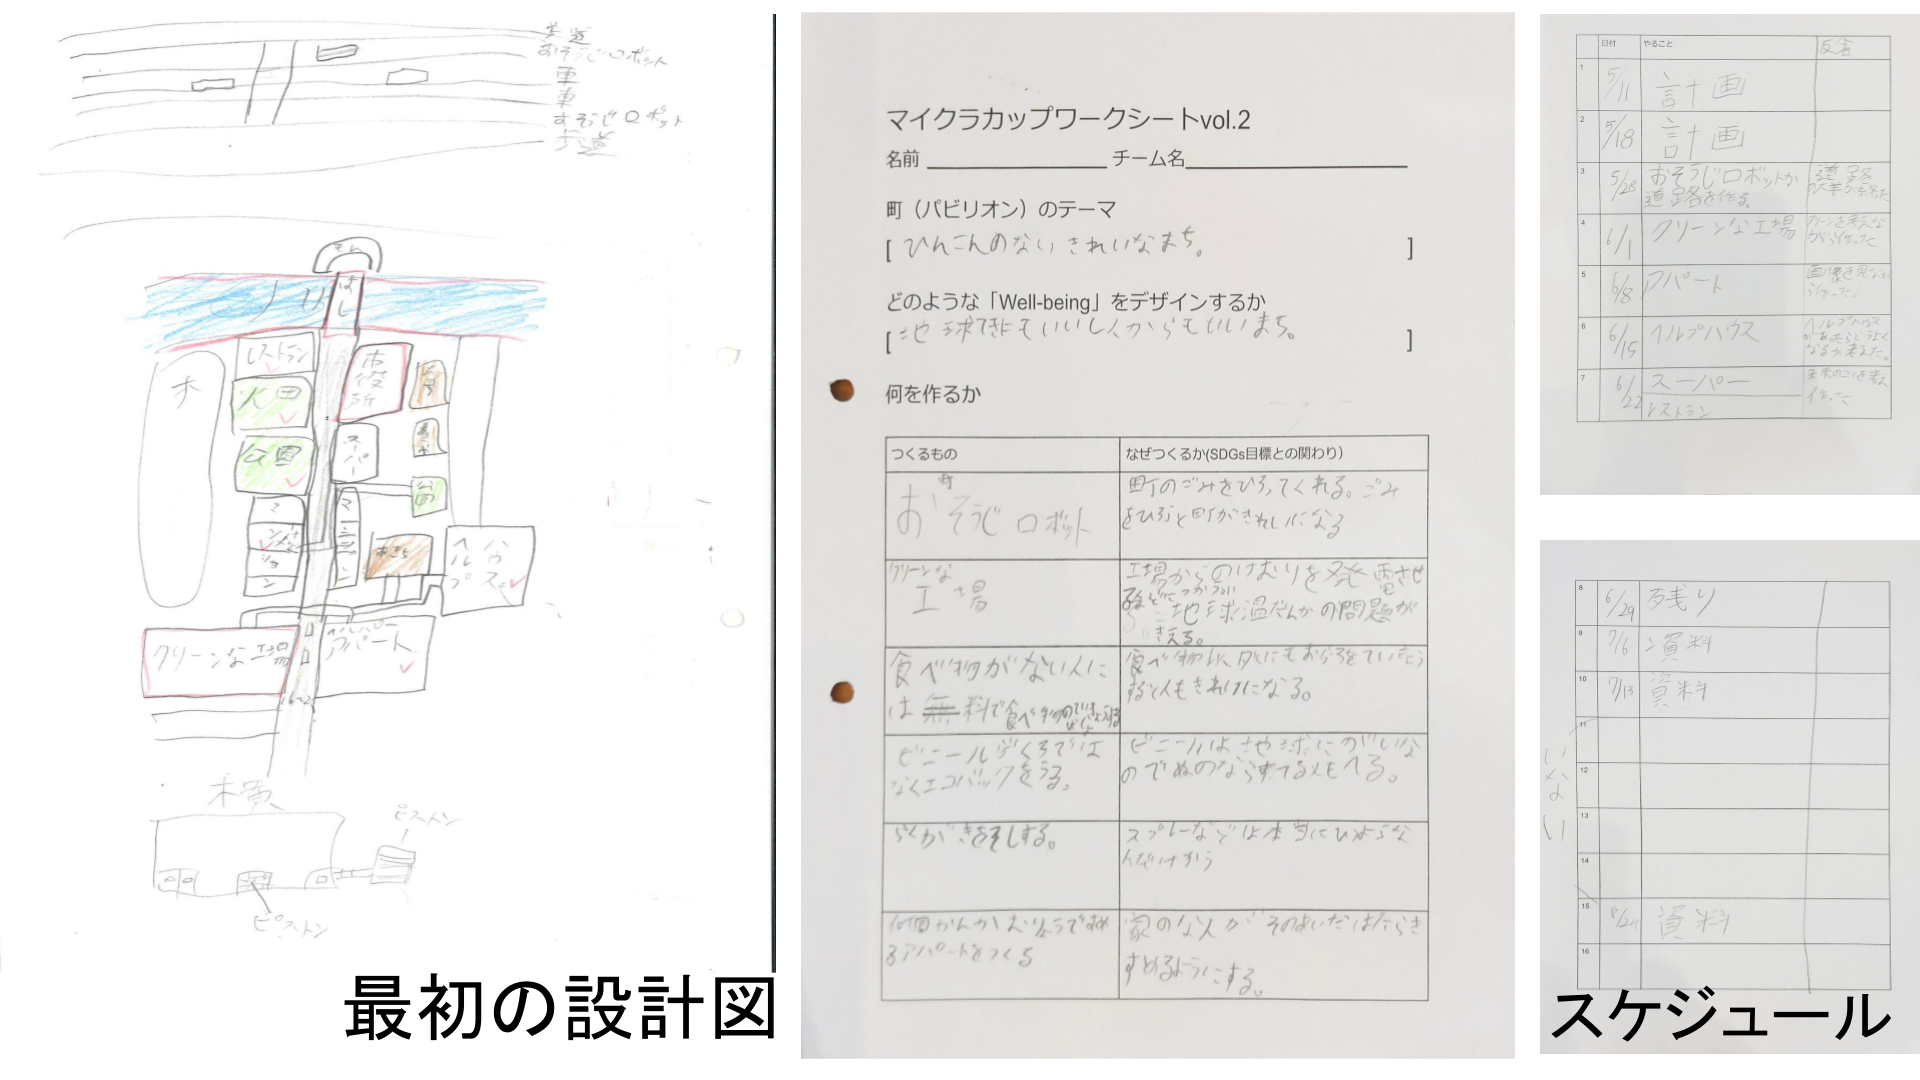 歩道
おそうじロボット
車
車
おそうじロボット
歩道
はし
川
木
レストラン
市役所
火田
公園
スーパー
公園
マンション
マンション
ヘルプハウス
クリーンな工場
アパート
木黄
ピストン
ピストン
最初の設計図
マイクラカップワークシートvol.2
名前 チーム名
町（パビリオン）のテーマ
[ ひんこんのない きれいなまち。 ]
どのような「Well-being」をデザインするか
[ 地球てきにもいいし人からもいいまち。 ]
何を作るか
つくるもの
なぜつくるか(SDGs目標との関わり）
町
おそうじロボット
町のごみをひろってくれる。ごみ
をひろうと町がきれいになる
クリーンな
工場
工場からのけむりを発電させ
地球温だんかの問題が
きえる。
食べ物がない人に
は無料で食べ物
人もきれいになる。
ビニールぶくろでは
なくエコバックをうる。
ビニールは地球に
のでぬのならすてる人もへる。
らくがきをけしする。
スプレーなどは本当に
アパートをつくる
家のな人がそのあいだはたらき
すめるようにする。
日付 やること 反省
1 5/11 計画
2 5/18 計画
3 5/28 おそうじロボットか
道路を作る。
道路
4 6/1 クリーンな工場
クリーンを考えな
がら作った
5 6/8 アパート
画像を見なが
ら作った。
6 6/15 ヘルプハウス
ヘルプハウス
があったらどうよく
なるか考えた。
7 6/22 スーパー
レストラン
未来のことを考え
作った
8 6/29 残り
9 7/6 資料
10 7/13 資料
11
12
13
14
15 8/24 資料
16
いない
スケジュール